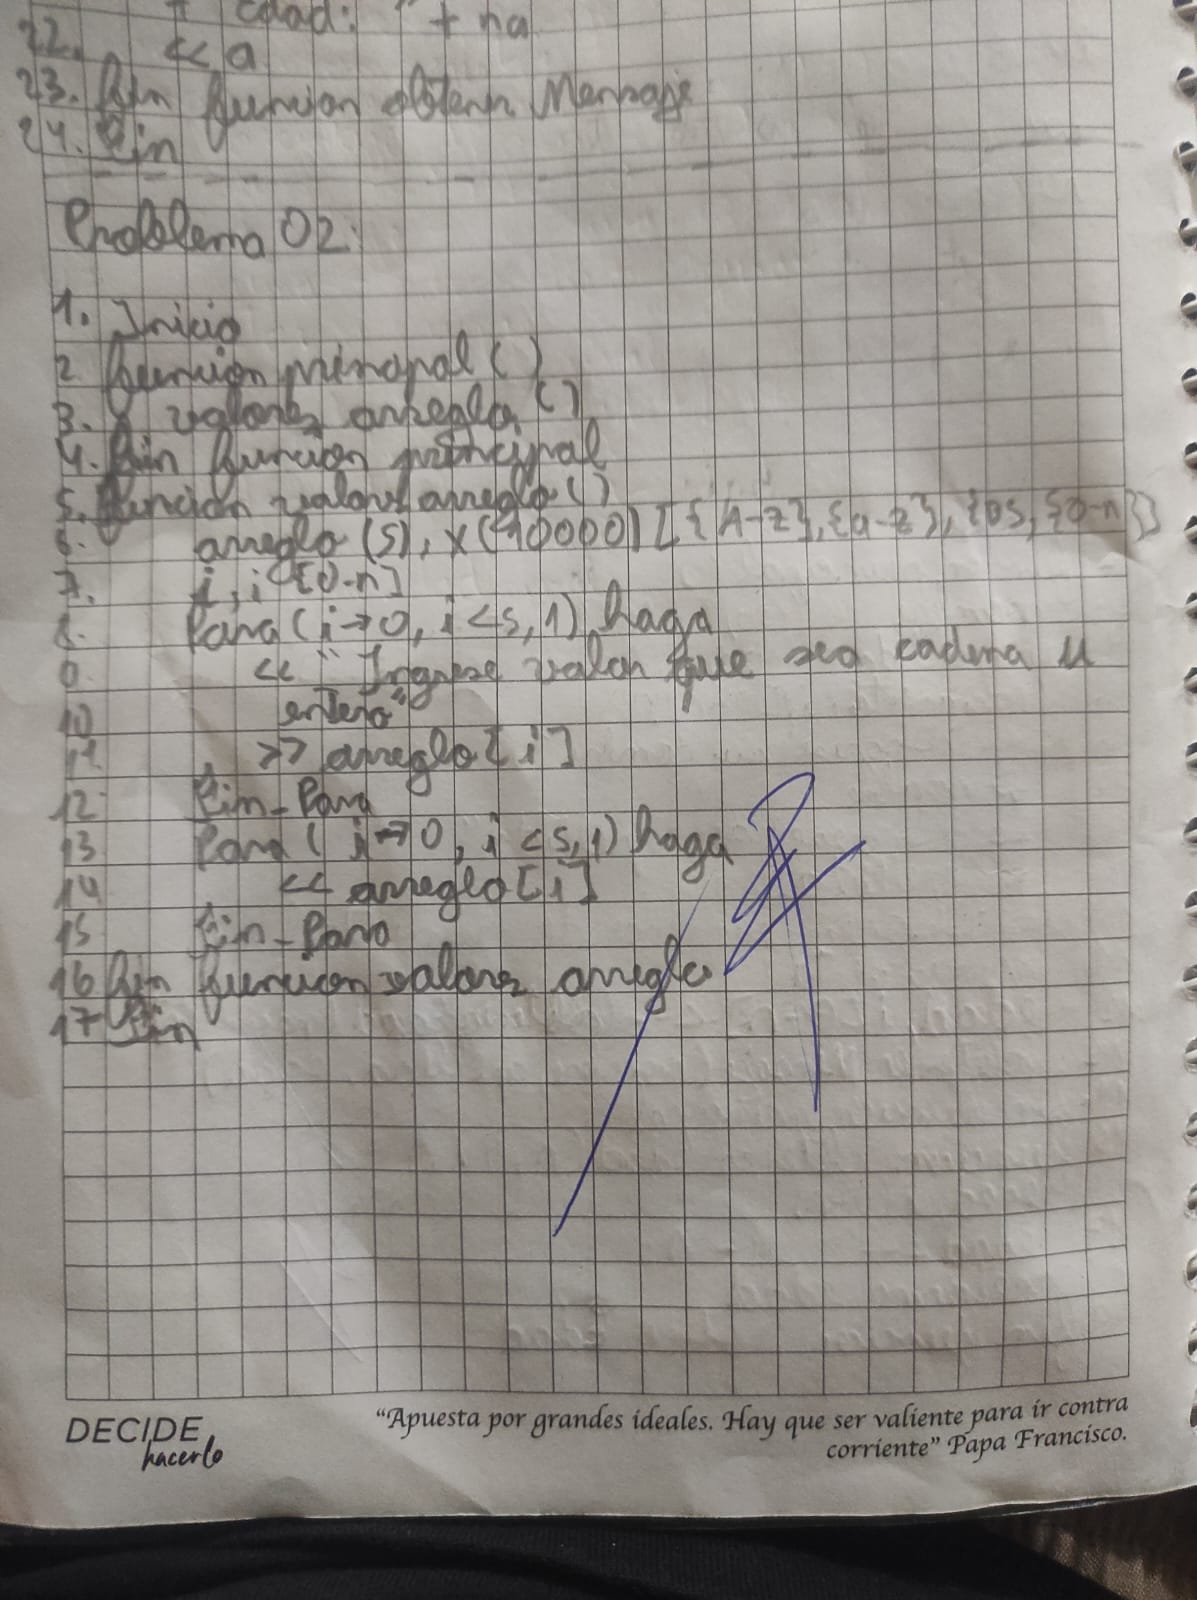 edad: " + na
22. << a
23. Fin funcion obtener Mensaje
24. Fin
Problema 02:
1. Inicio
2 funcion principal ( )
3. valores arreglo ( )
4. Fin funcion principal
5. funcion valores arreglo ( )
6. arreglo (5), x (10000) [ {A-z}, {a-z},
7. i, i [0-n]
8. Para ( i → 0, i < 5, 1) haga
9. << " Ingrese valor que sea cadena u
10 entero"
11 >> arreglo [ i ]
12 Fin - Para
13 Para ( i → 0, i < 5, 1) haga
14 << arreglo [ i ]
15 Fin - Para
16 Fin funcion valores arreglo
17 Fin
DECIDE hacerlo
“Apuesta por grandes ideales. Hay que ser valiente para ir contra
corriente” Papa Francisco.